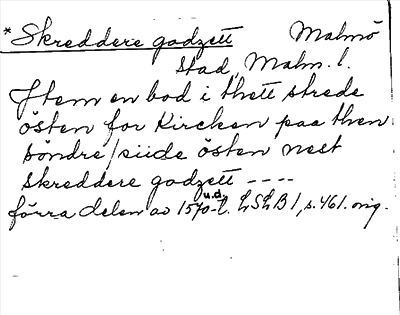 *Skreddere godzett Malmö
Stad, Malm. l.
Jtem en bod i thett strede
östen for Kircken paa then
söndre/siide östen nest
skreddere godzett ----
förra delen av 1570-t. u.d. LSLB 1, s. 461. orig.